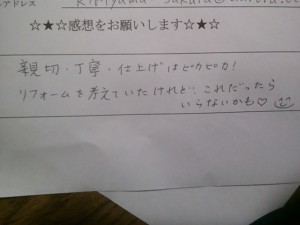 アドレス
☆★☆感想をお願いします☆★☆
親切・丁寧・仕上げはピカピカ!
リフォームを考えていたけれど、これだったら
いらないかも♡